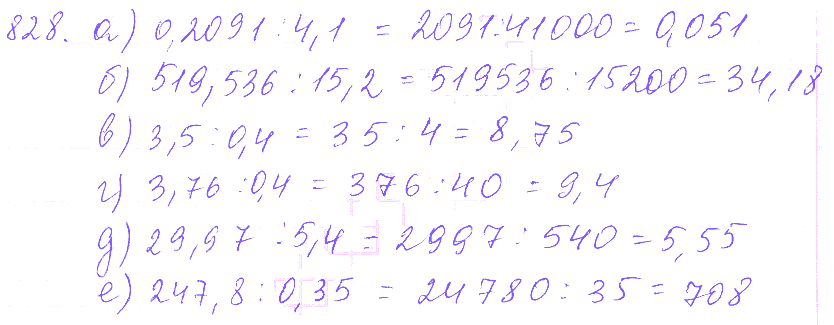 828. а) 0,2091 : 4,1 = 2091:41000 = 0,051
б) 519,536 : 15,2 = 519536 : 15200 = 34,18
в) 3,5 : 0,4 = 35 : 4 = 8,75
г) 3,76 : 0,4 = 376 : 40 = 9,4
д) 29,97 : 5,4 = 2997 : 540 = 5,55
е) 247,8 : 0,35 = 24780 : 35 = 708